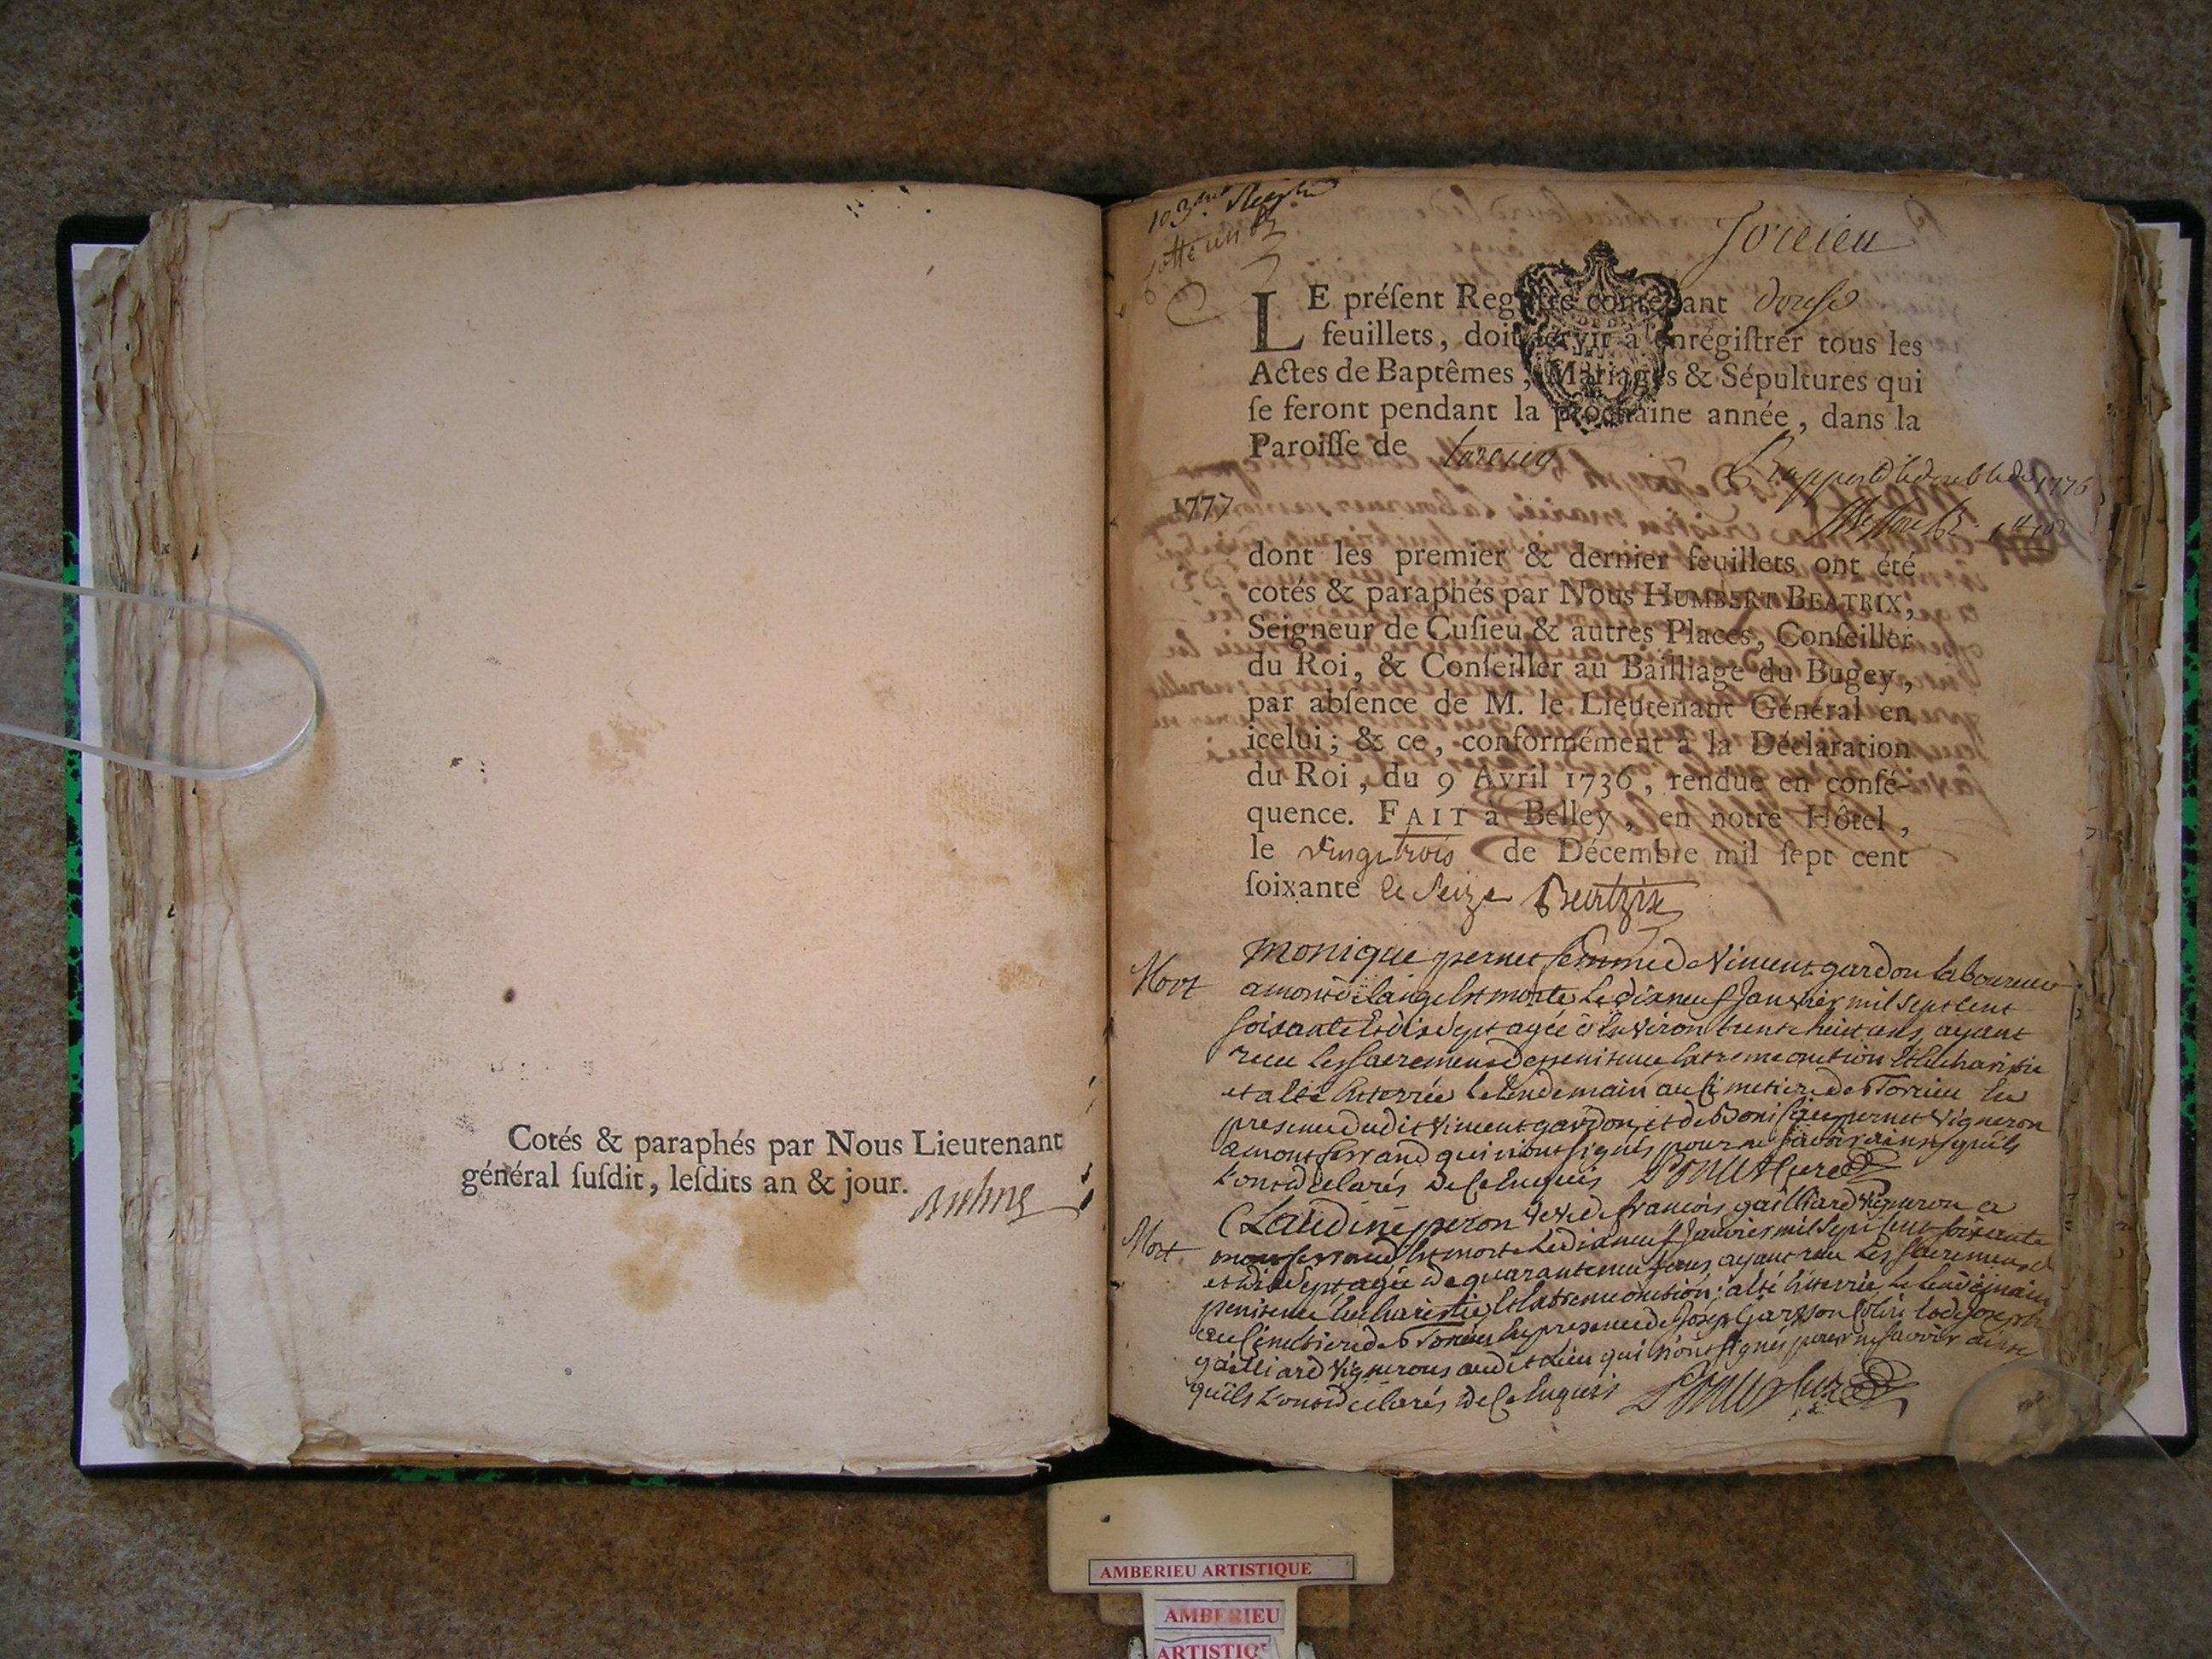 Cotés & paraphés par Nous Lieutenant
général ſuſdit, leſdits an & jour.
103
cotté un
Torcieu
LE préſent Regiſtre contenant douſe
feuillets, doit ſervir à enrégiſtrer tous les
Actes de Baptêmes, Mariages & Sépultures qui
ſe feront pendant la prochaine année, dans la
Paroiſſe de torcieu
1777
dont les premier & dernier feuillets ont été
cotés & paraphés par Nous HUMBERT BEATRIX,
Seigneur de Cuſieu & autres Places, Conſeiller
du Roi, & Conſeiller au Bailliage du Bugey,
par abſence de M. le Lieutenant Général en
icelui; & ce, conformément à la Déclaration
du Roi, du 9 Avril 1736, rendue en conſé-
quence. FAIT à Belley, en notre Hôtel,
le vingt trois de Décembre mil ſept cent
ſoixante & seize Béatrix
Mort
monique pernet femme de Vincent gardon laboureur
a montdelange est morte le dixneuf Janvier mil sept cent
soixante et dix sept agée d'environ trente huit ans ayant
recu les sacremens de penitence extreme onction et Eucharistie
et a été enterrée le lendemain au cimetiere de Torcieu en
presence dudit Vincent gardon et de pernet Vigneron
a montferrand qui n'ont signés pour ne savoir ainsy qu'ils
l'ont déclarés de ce enquis curé
Mort
Claudine peron veve de francois gailliard Vigneron a
montferrand est morte le dixneuf Janvier mil sept cent soixante
et dix sept agée de quarante neuf ans ayant recu les sacremens de
penitence Eucharistie et extreme onction; a été enterrée le lendemain
au cimetiere de Torcieu en presence de Joseph et de Joseph
gailliard Vignerons audit Lieu qui n'ont signés pour ne savoir ainsy
qu'ils l'ont déclarés de ce enquis curé
AMBERIEU ARTISTIQUE
AMBERIEU
ARTISTIQ